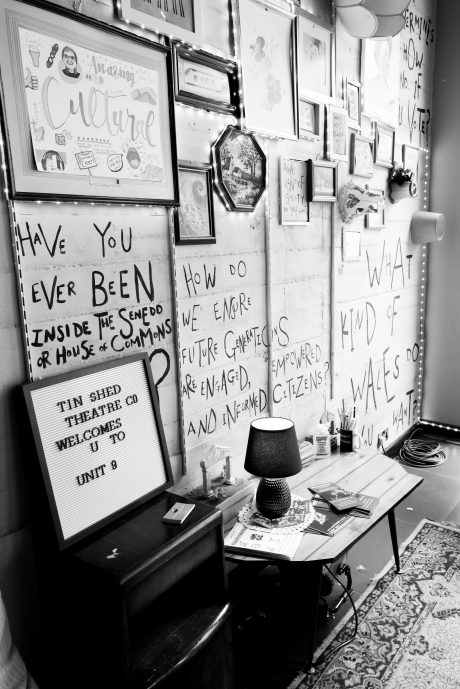 Amazing
Cultural
HAVE YOU
EVER BEEN
INSIDE THE SENEDD
OR HOUSE OF COMMONS
?
HOW DO
WE ENSURE
FUTURE GENERATIONS
ARE ENGAGED, EMPOWERED
AND INFORMED CITIZENS?
WHAT
KIND OF
WALES DO
YOU WANT?
HOW
U VOTE?
TIN SHED
THEATRE CO
WELCOMES
U TO
UNIT 9